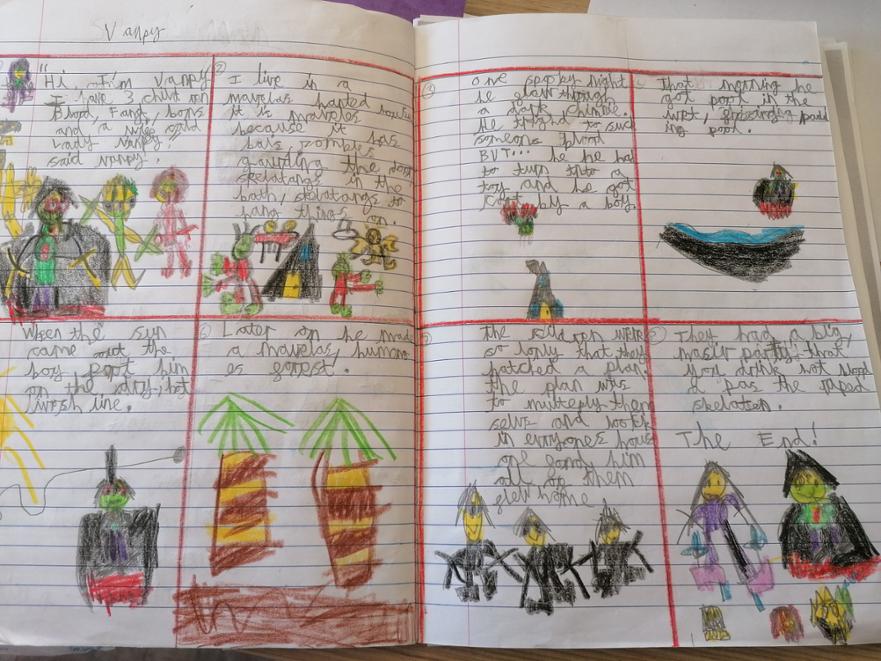 Vappy
"Hi I'm Vappy
I have 3 children
Blood, Fang, bons
and a wife said
lady Vappy"
said Vappy.
②
I live in a
mavelas hanted
it is maveles
because it
has zombies
gauding the door
skelatangs in the
bath, skelatangs to
hang things on.
③
one spooky night
he flew through
a dark chimble.
He trighd to suck
someons blood
BUT... he he had
to turn into a
toy and he got
by a boy.
That morning he
got poot in the
ing pool.
When the sun
came out the
boy poot him
on the
wosh line.
⑥
Later on he made
a mavelas, humane
forist.
The children were
so lonly that they
hatched a plan.
the plan was
to multeply them
selvs and look
in everyones hous
one fondy him
all of them
flew home
They had a big,
party that
you drink not blood
skelaton.
The End!